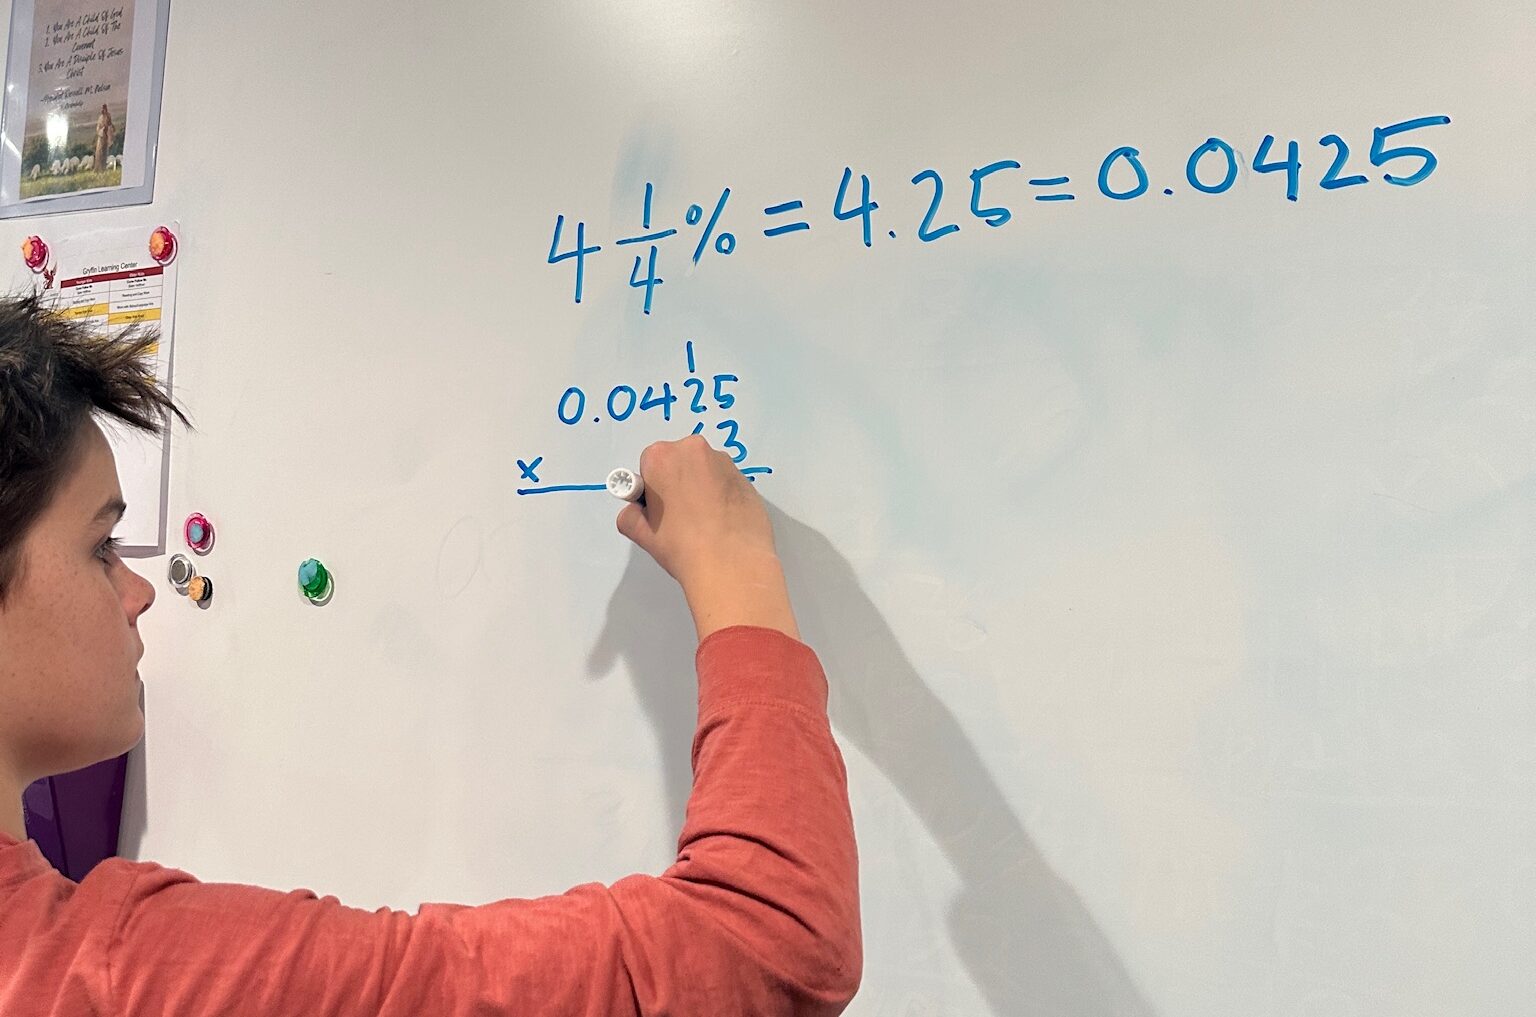 1. You Are A Child Of God
2. You Are A Child Of The
Covenant
3. You Are A Disciple Of Jesus
Christ
Gryffin Learning Center
4 1/4 % = 4.25 = 0.0425
1
0.0425
3
×